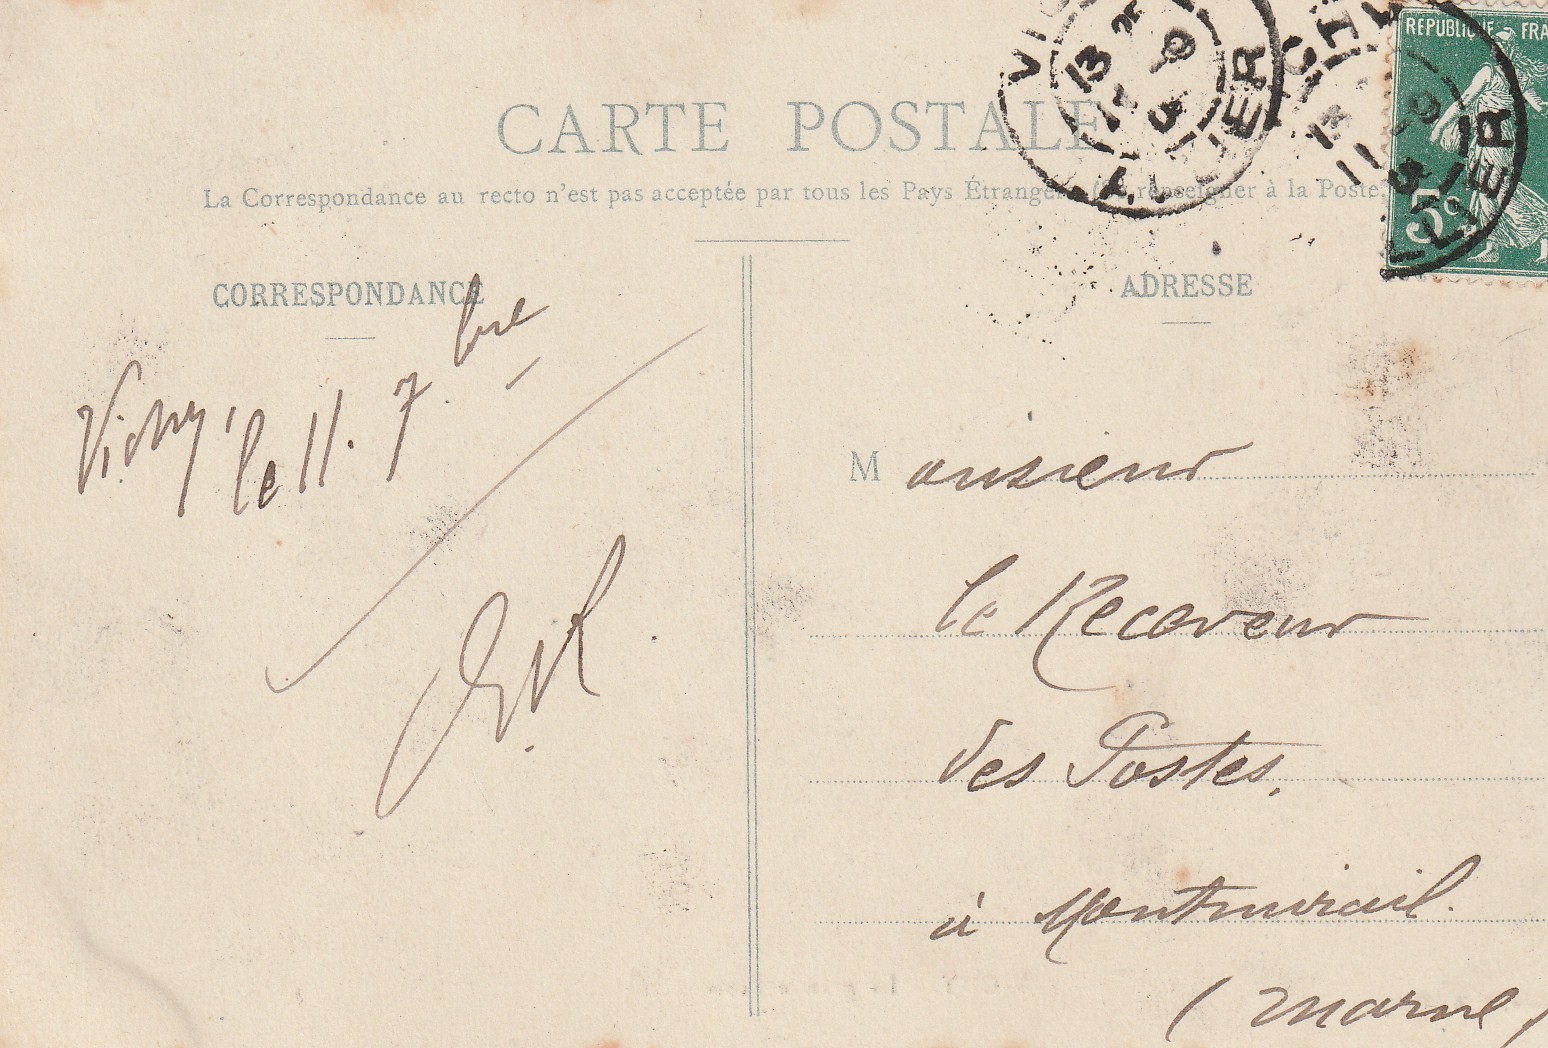 CARTE POSTALE
La Correspondance au recto n'est pas acceptée par tous les Pays Étrangers (Se renseigner à la Poste)
RÉPUBLIQUE FRA
5c
ALLIER
ALLIER
CORRESPONDANCE
ADRESSE
Vichy, le 11. 7bre
Monsieur
le Receveur
des Postes,
à Montmirail.
(Marne)